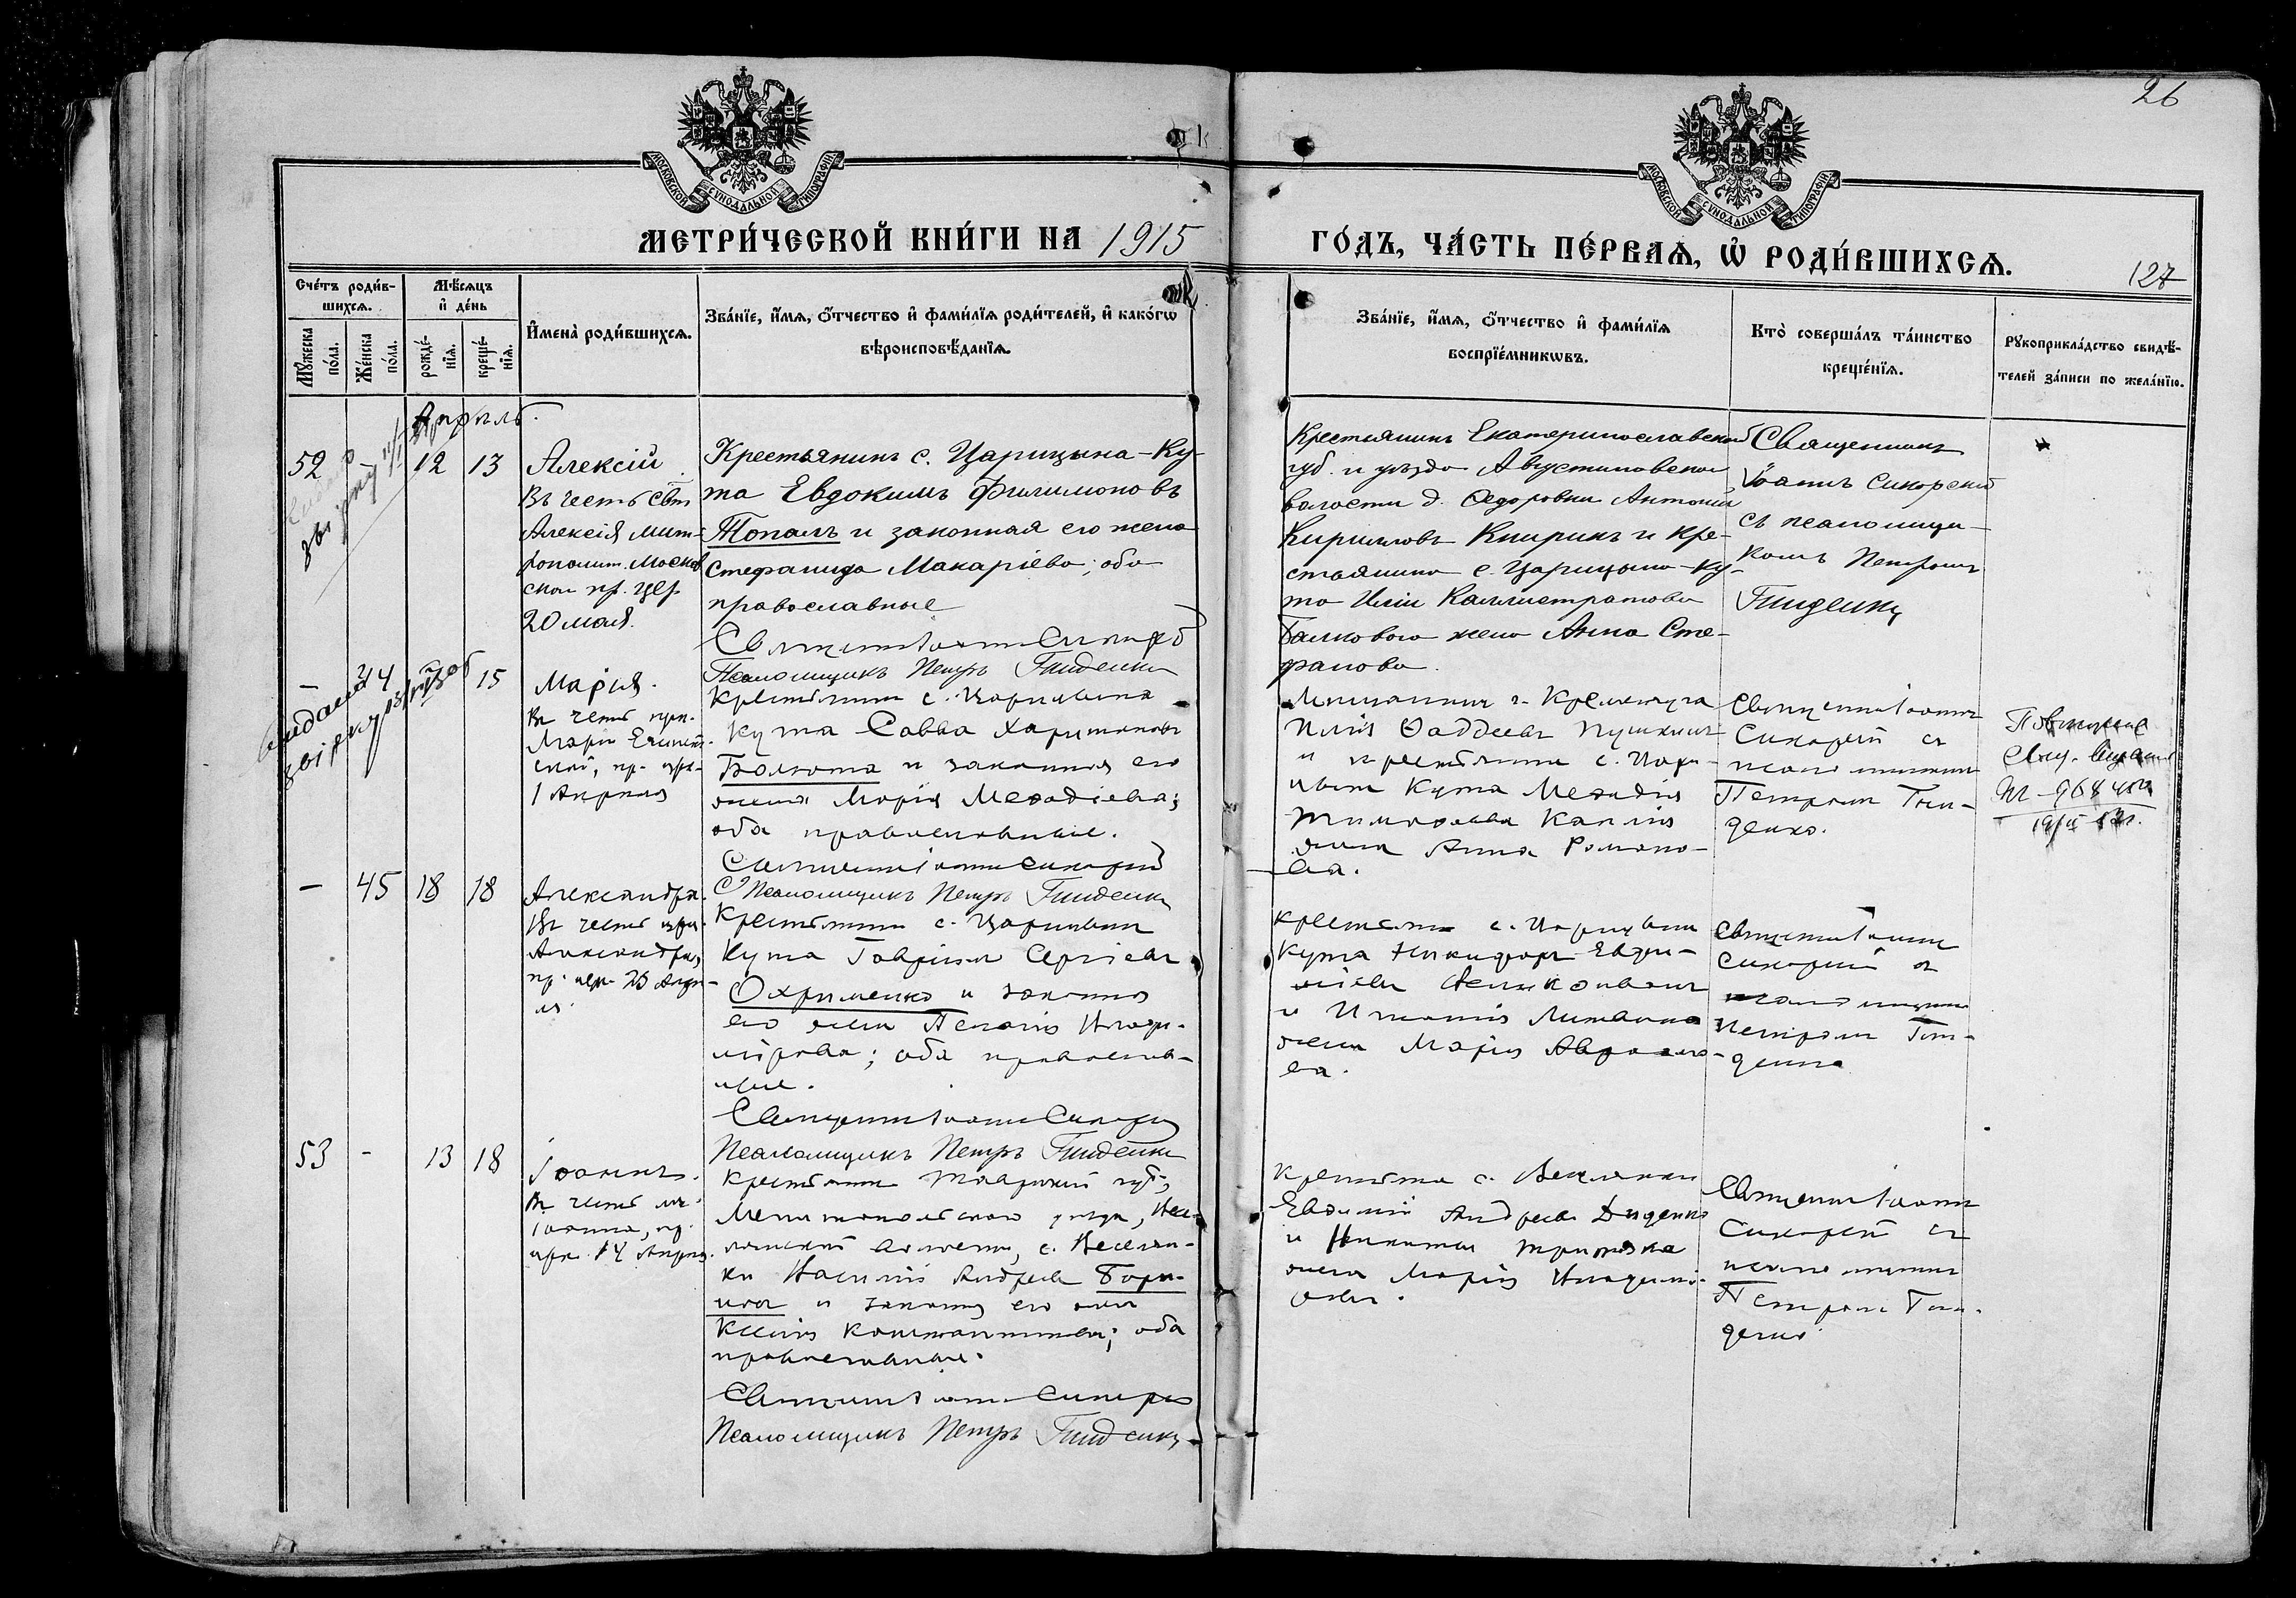 26
МОСКОВСКОЙ СѴНОДАЛЬНОЙ ТИПОГРАФІИ
МОСКОВСКОЙ СѴНОДАЛЬНОЙ ТИПОГРАФІИ
МЕТРИ́ЧЕСКОЙ КНИ́ГИ НА 1915
ГО́ДЪ, ЧА́СТЬ ПЕ́РВАѦ, Ѡ҆ РОДИ́ВШИХСѦ.
127
Сче́тъ роди́в-
шихсѧ.
Мꙋ́жеска
по́ла.
Же́нска
по́ла.
Мѣ́сѧцъ
и҆ де́нь
рожде́-
нїѧ.
креще́-
нїѧ.
И҆мена̀ роди́вшихсѧ.
Зва́нїе, и҆́мѧ, ѻ҆́тчество и҆ фами́лїѧ роди́телей, и҆ како́гѡ
вѣроисповѣ́данїѧ.
Зва́нїе, и҆́мѧ, ѻ҆́тчество и҆ фами́лїѧ
воспрїе́мникѡвъ.
Кто̀ соверша́лъ та́инство
креще́нїѧ.
Рꙋкоприкла́дство свидѣ́-
телей за́писи по жела́нїю.
Апрѣль.
52
12
13
Алексій
Въ честь Свт.
Алексія мит-
рополит. Москов
скаго пр. цер.
20 мая.
Крестьянинъ с. Царицына-Ку-
та Евдокимъ Филимоновъ
Топалъ и законная его жена
Стефанида Макаріева; оба
православные
Священникъ Іоаннъ Сикорскій
Псаломщикъ Петръ Гниденко
Крестьянинъ Екатеринославской
губ. и уѣзда Августиновской
волости д. Ѳедоровки Антоній
Кирилловъ Книрикъ и кре-
стьянина с. Царицына-Ку-
та Иліи Каллистратова
Балковаго жена Анна Сте-
фанова.
Священникъ
Іоаннъ Сикорскій
съ псаломщи-
комъ Петромъ
Гниденко
–
44
15
Марія.
Въ честь преп.
Маріи Египет-
ской, пр. црк.
1 Апрѣля
Крестьянинъ с. Царицына
Кута Савва Харитоновъ
Болюта и законная его
жена Марія Меѳодіева;
оба православные.
Священникъ Іоаннъ Сикорскій
Псаломщикъ Петръ Гниденко
Мѣщанинъ г. Кременчуга
Илія Ѳаддеевъ Пушкинъ
и крестьянина с. Цари-
цына Кута Меѳодія
Тимоѳеева Каплія
жена Анна Романо-
ва.
Священникъ Іоаннъ
Сикорскій съ
псаломщикомъ
Петромъ Гни-
денко.
–
45
18
18
Александра.
Въ честь цри.
Александры,
пр. церк. 23 Апрѣ-
ля.
Крестьянинъ с. Царицына
Кута Гавріилъ Сергіевъ
Охрименко и законная
его жена Пелагія Влади-
мірова; оба православ-
ные.
Священникъ Іоаннъ Сикорскій
Псаломщикъ Петръ Гниденко
Крестьянинъ с. Царицына
Кута Никифоръ
и Игнатія Литвина
жена Марія Авраамо-
ва.
Священникъ Іоаннъ
Сикорскій съ
псаломщикомъ
Петромъ Гни-
денко
53
-
13
18
Іоаннъ.
Въ честь мч.
Іоанна, пр.
црк. 14 Апрѣля.
Крестьянинъ Таврической губ.,
Мелитопольскаго уѣзда, Весе-
лянской волости, с. Веселян-
ки Василій Андреевъ
и законная его жена
Ксенія Константинова; оба
православные.
Священникъ Іоаннъ Сикорскій
Псаломщикъ Петръ Гниденко
Крестьяне с. Веселянки
Евѳимій Андреевъ Диденко
и Никиты
жена Марія Владимі-
рова.
Священникъ Іоаннъ
Сикорскій съ
псаломщикомъ
Петромъ Гни-
денко